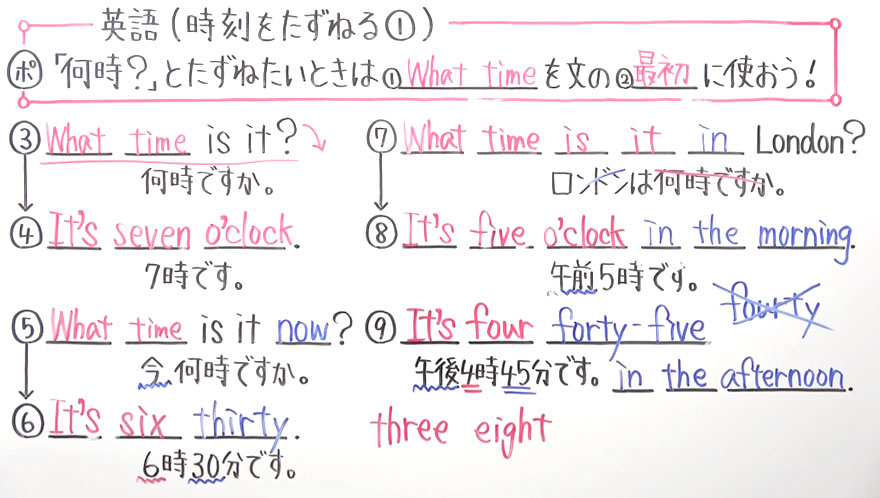 英語(時刻をたずねる①)
ポ 「何時?」とたずねたいときは①What timeを文の②最初に使おう!
③What time is it?
何時ですか。
④It's seven o'clock.
7時です。
⑤What time is it now?
今、何時ですか。
⑥It's six thirty.
6時30分です。
⑦What time is it in London?
ロンドンは何時ですか。
⑧It's five o'clock in the morning.
午前5時です。
fourty
⑨It's four forty-five
午後4時45分です。in the afternoon.
three eight